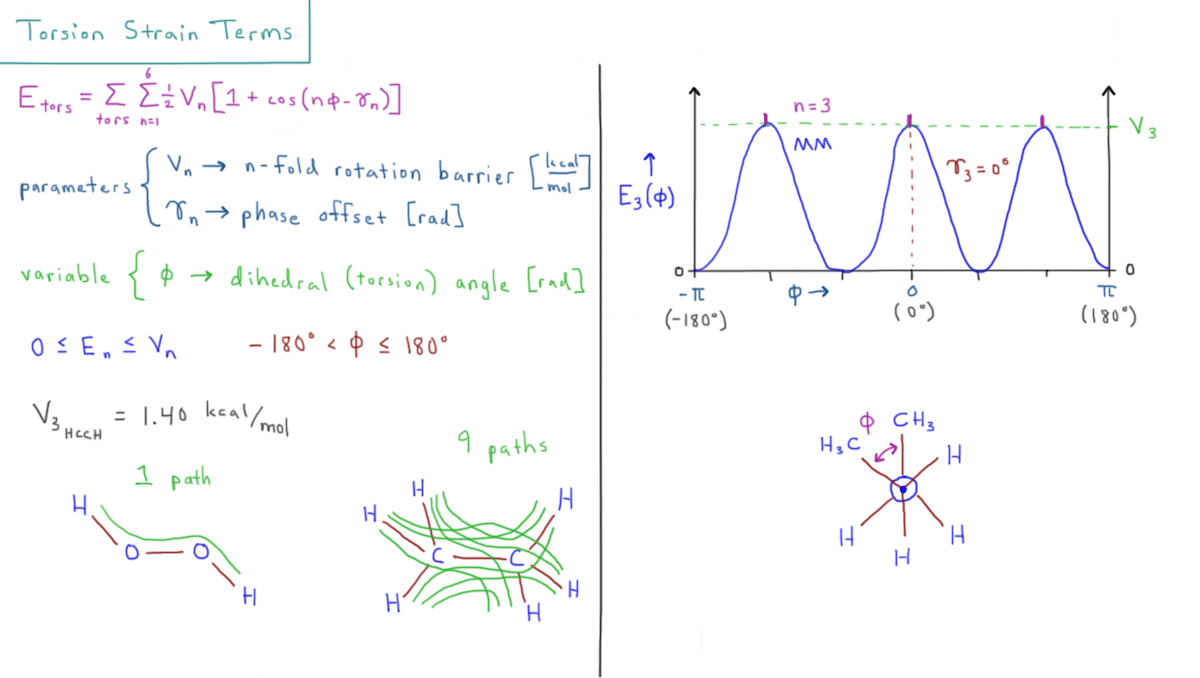 Torsion Strain Terms
E tors = Σ tors Σ n=1 6 1/2 Vn [1 + cos(nφ-γn)]
parameters { Vn → n-fold rotation barrier [kcal/mol]
γn → phase offset [rad]
variable { φ → dihedral (torsion) angle [rad]
0 ≤ En ≤ Vn
-180° < φ ≤ 180°
V3 HCCH = 1.40 kcal/mol
1 path
H
O — O
H
9 paths
H H H
C — C
H H H
n=3
MM
V3
γ3 = 0°
↑
E3(φ)
0 0
-π φ → 0 π
(-180°) (0°) (180°)
φ CH3
H3C H
H H
H